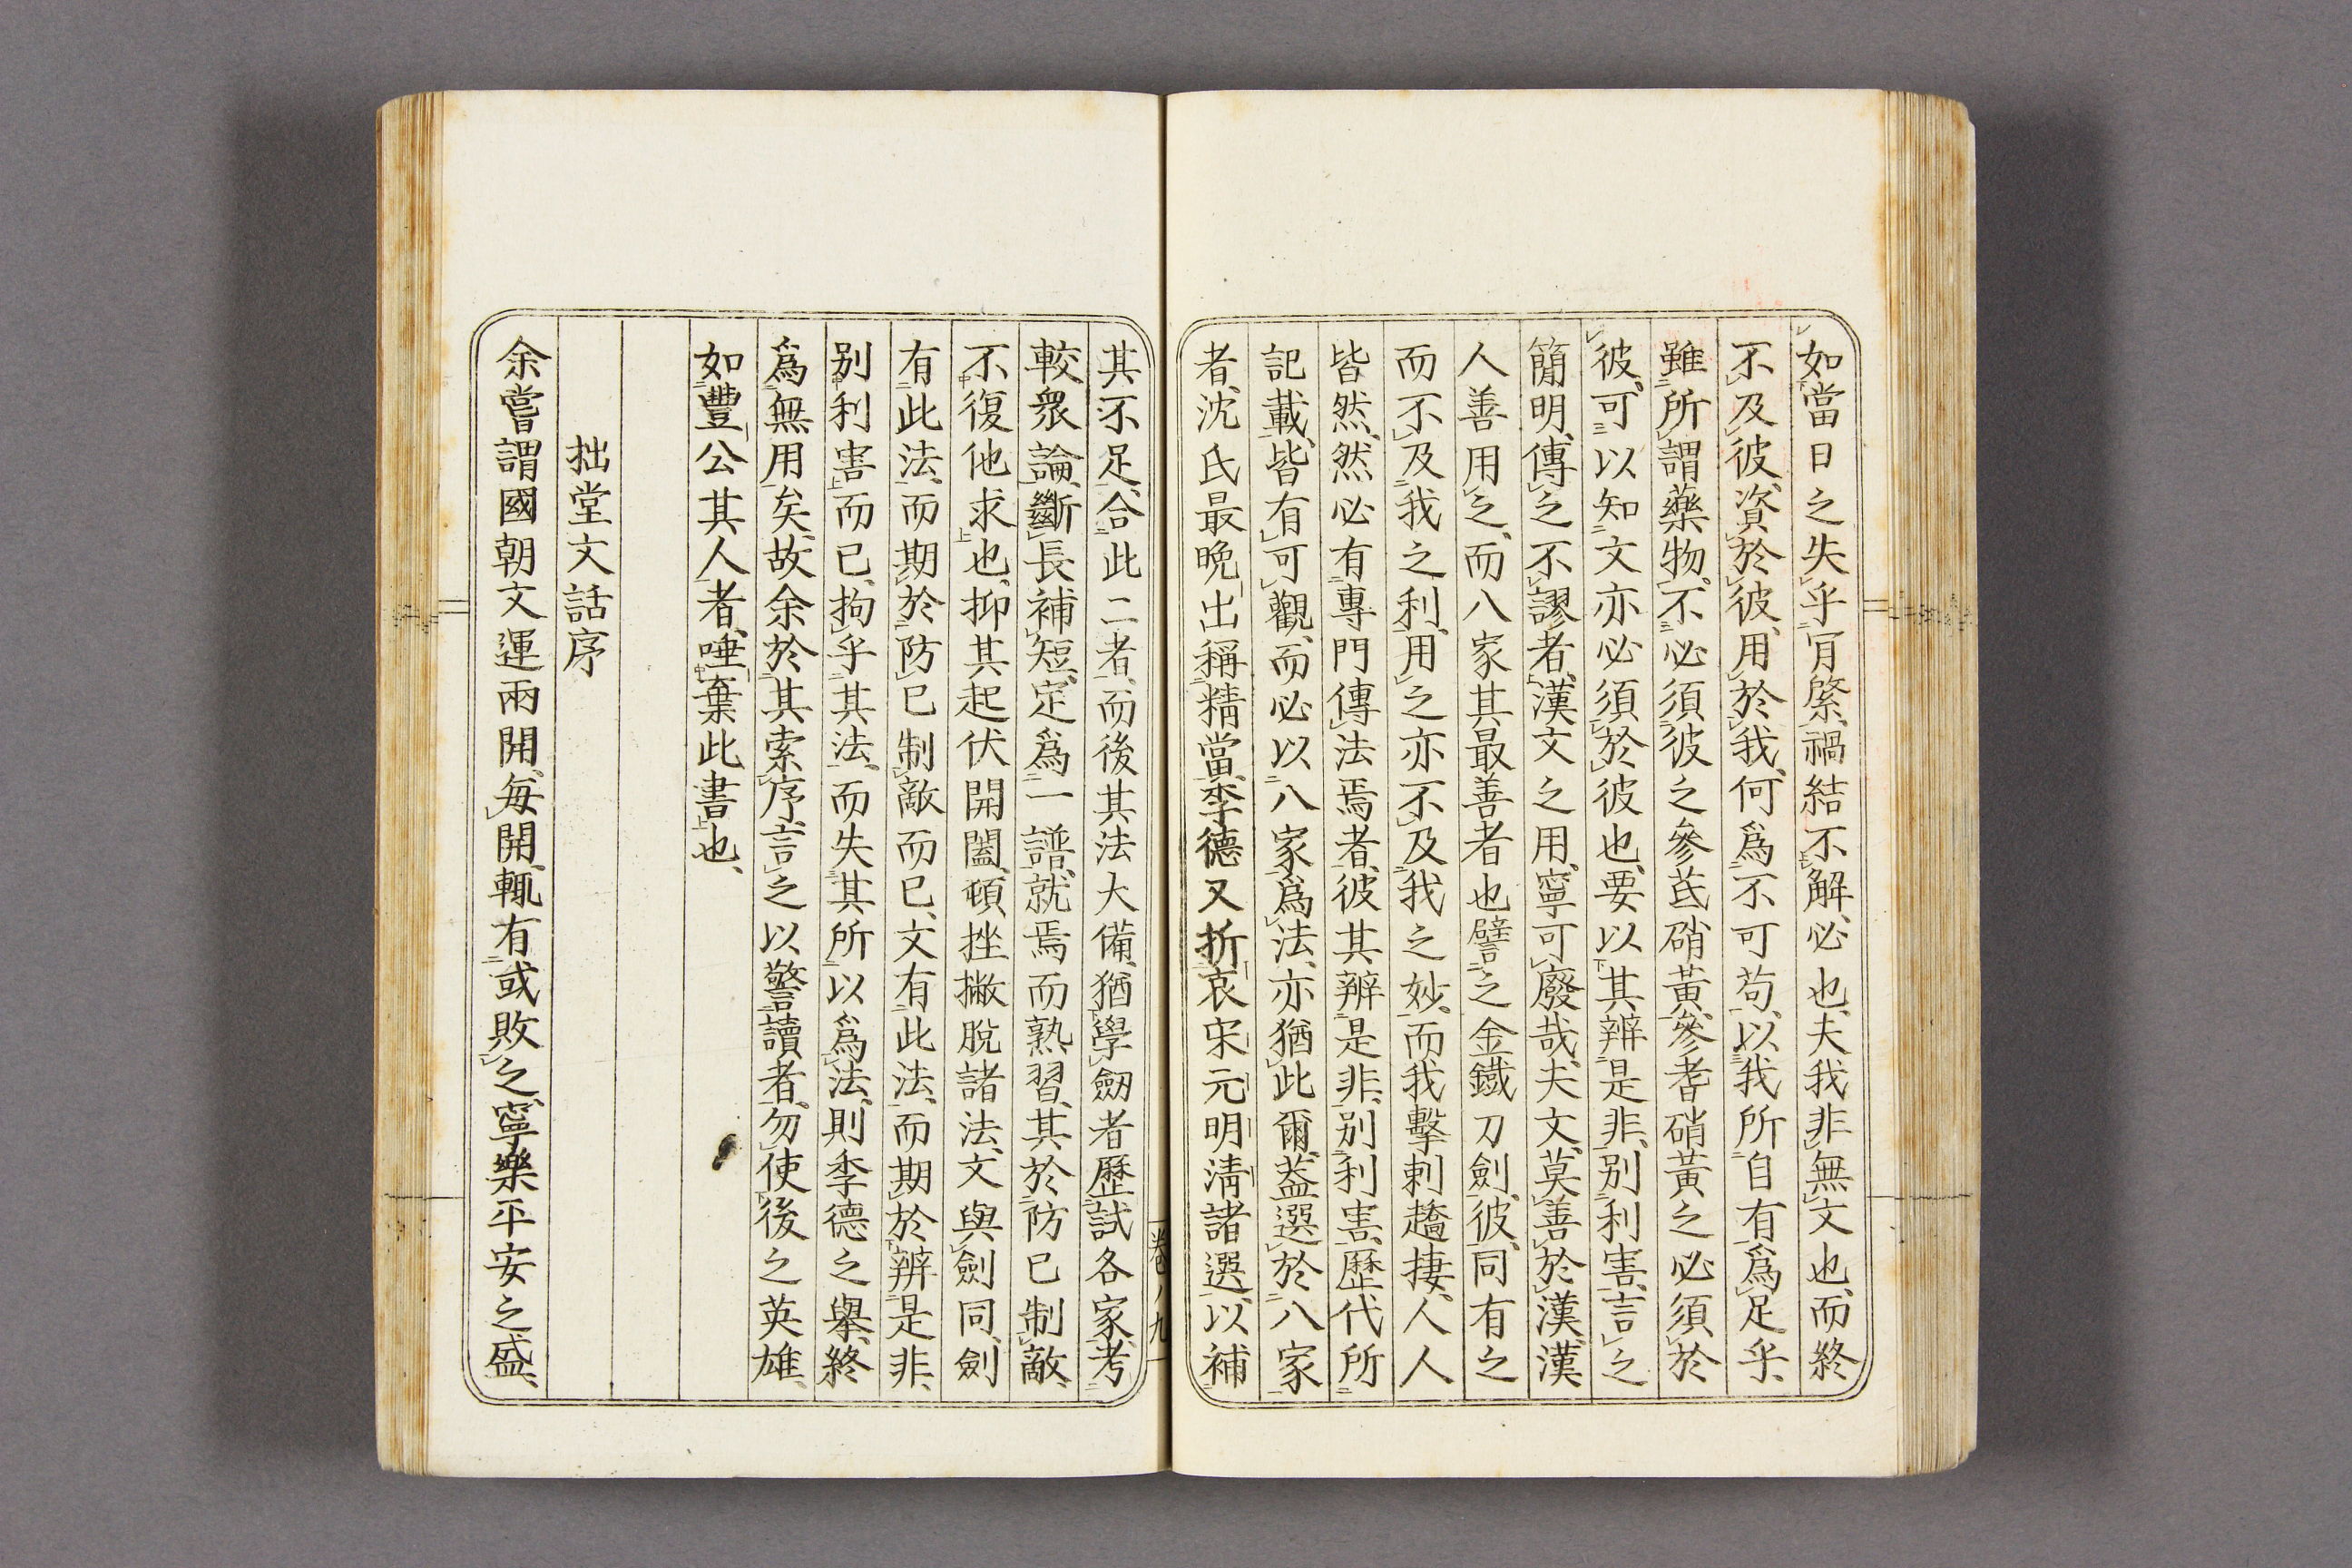 如當日之失乎肯綮、禍結不解必也、夫我非無文也、而終
不及彼、資於彼、用於我、何爲不可苟、以我所自有爲足乎、
雖所謂藥物、不必須彼之參茋硝黃、參耆硝黃之必須於
彼、可以知文亦必須於彼也、要以其辨是非、別利害、言之
簡明、傳之不謬者、漢文之用、寧可廢哉、夫文莫善於漢、漢
人善用之、而八家其最善者也譬之金鐵刀劍、彼同有之
而不及我之利、用之亦不及我之妙、而我擊刺趫捷、人人
皆然、然必有專門傳法焉者、彼其辨是非、別利害、歷代所
記載、皆有可觀、而必以八家爲法、亦猶此爾、葢選於八家
者、沈氏最晩出稱精當、李德又折衷宋元明淸諸選、以補
其不足、合此二者、而後其法大備、猶學劒者歷試各家、考
較衆論、斷長補短、定爲一譜、就焉而熟習、其於防已制敵、
不復他求也、抑其起伏開闔、頓挫撇脫諸法、文與劍同、劍
有此法、而期於防已制敵而已、文有此法、而期於辨是非、
別利害而已、拘乎其法、而失其所以爲法、則李德之擧、終
爲無用矣、故余於其索序、言之以警讀者、勿使後之英雄、
如豐公其人者、唾棄此書也、
拙堂文話序
余嘗謂國朝文運兩開、每開、輒有或敗之、寧樂平安之盛、
卷ノ九